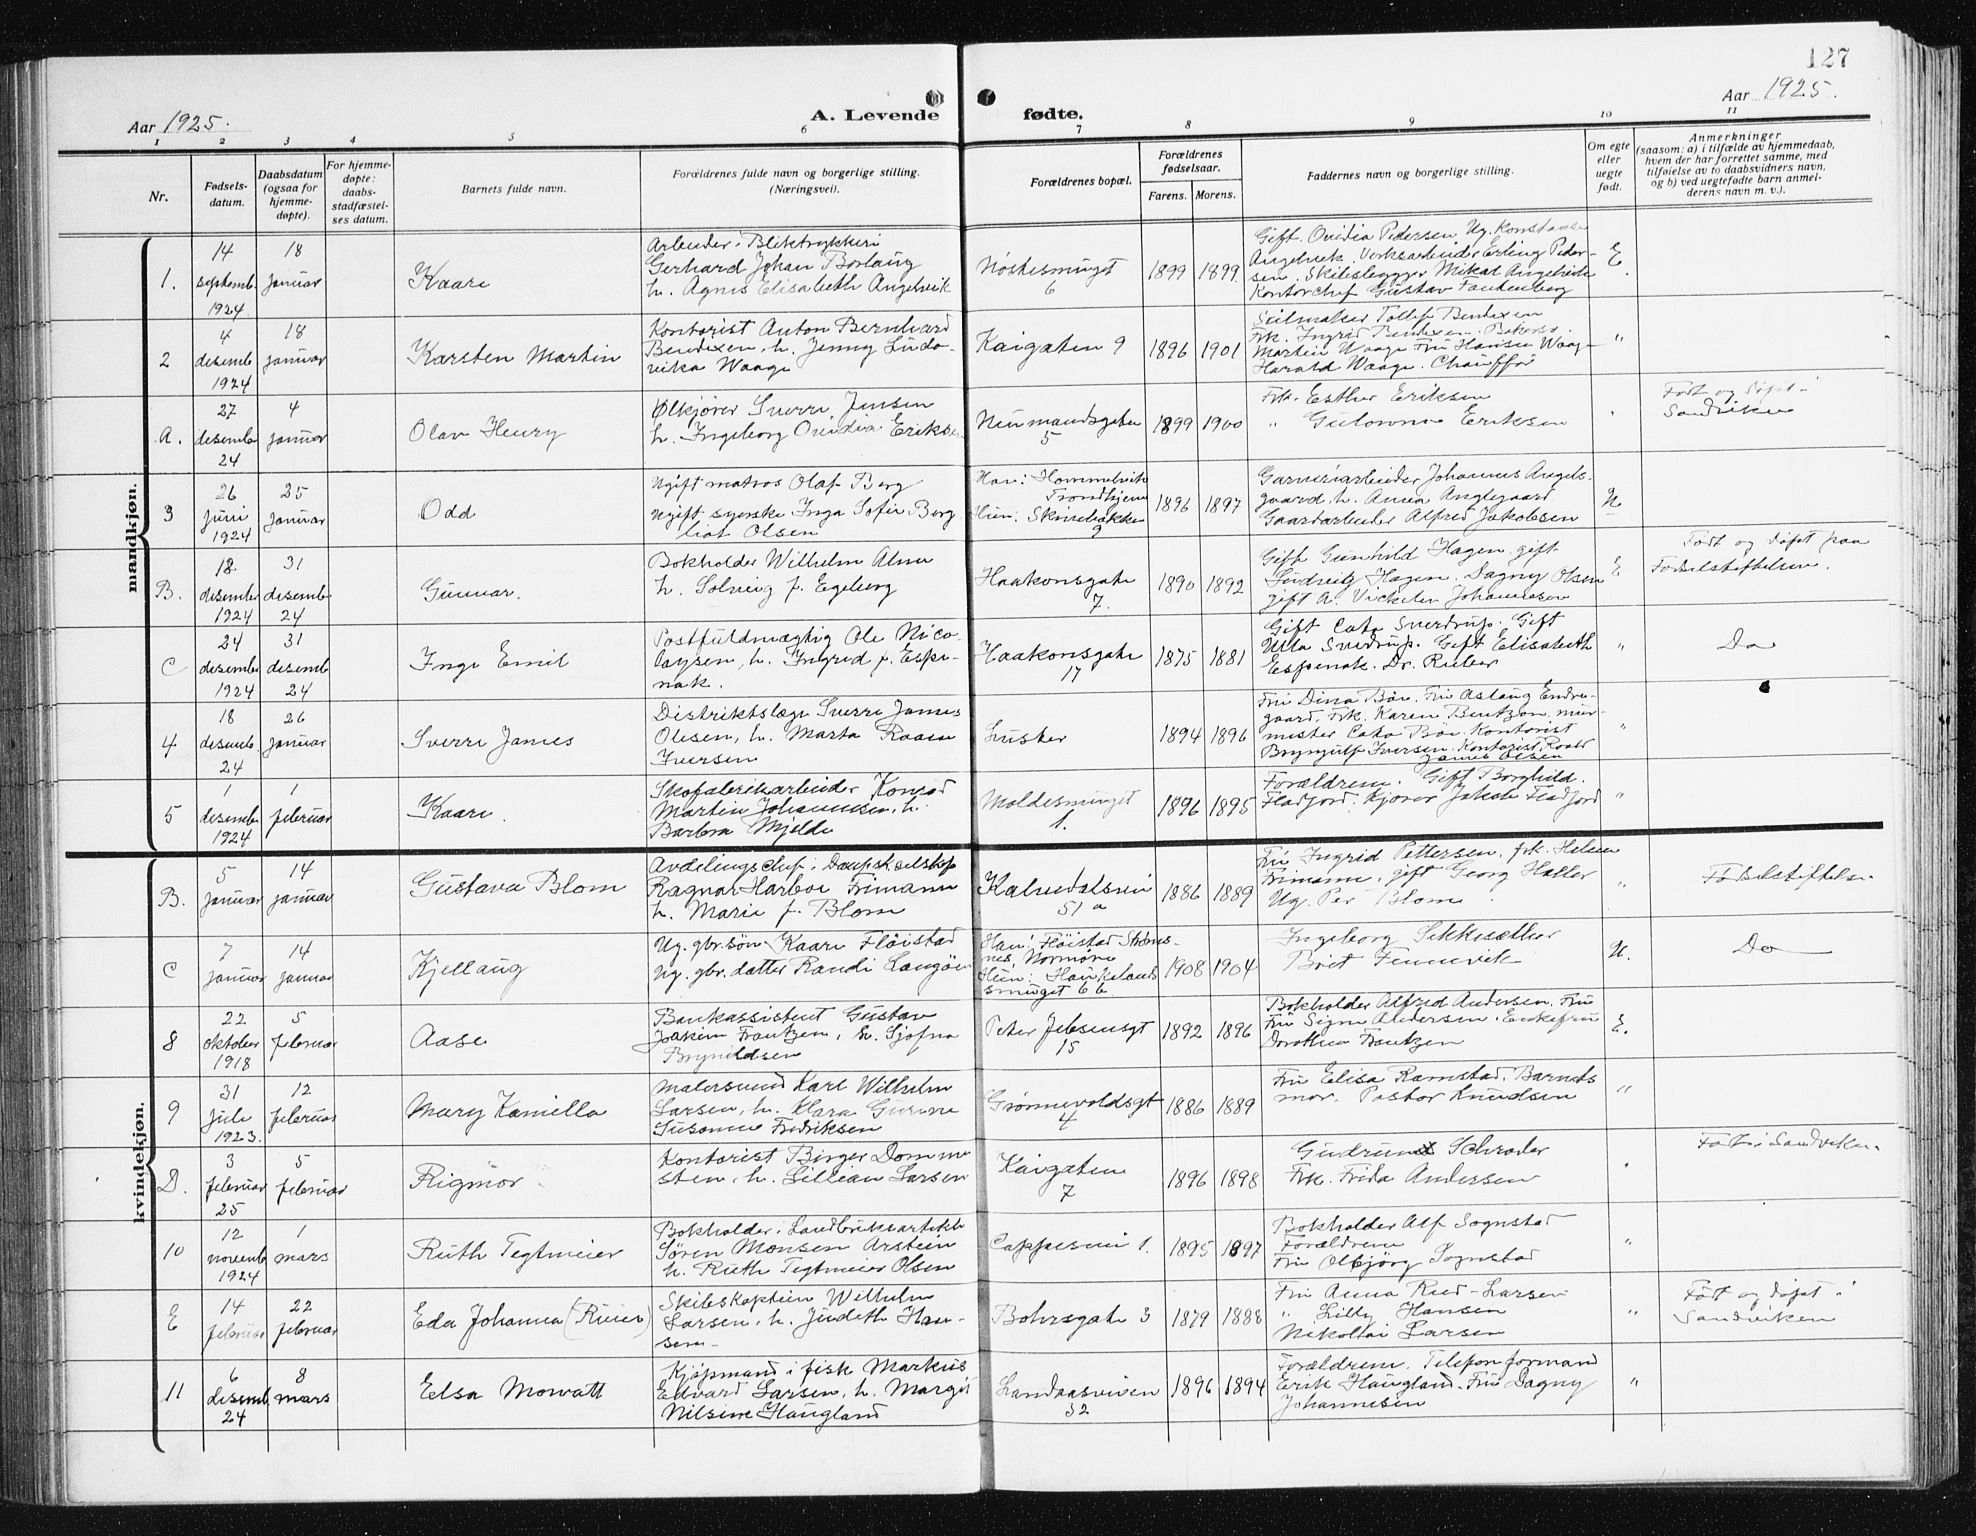 127
Aar 1925.
A. Levende fødte.
Aar 1925.
1 2 3 4 5 6 7 8 9 10 11
Nr.
Fødsels-
datum.
Daabsdatum
(ogsaa for
hjemme-
døpte).
For hjemme-
døpte:
daabs-
stadfæstel-
ses datum.
Barnets fulde navn.
Forældrenes fulde navn og borgerlige stilling.
(Næringsvei).
Forældrenes bopæl.
Forældrenes
fødselsaar.
Farens. Morens.
Faddernes navn og borgerlige stilling.
Om egte
eller
uegte
født.
Anmerkninger
(saasom: a) i tilfælde av hjemmedaab,
hvem der har forrettet samme, med
tilføielse av to daabsvidners navn,
og b) ved uegtefødte barn anmel-
derens navn m. v.).
mandkjøn.
1.
14
septemb.
1924
18
januar
Kaare
Arbeider i Bliktrykkeri
Gerhard Johan Borlaug
h. Agnes Elisabeth Angelvik
Nøstesmuget
6
1899 1899
Gift Ovidia Pedersen. Ug. Konstanse
Angelvik. Verksarbeider Erling Peder-
sen. Skibsbygger Mikal Angelvik
Kontorchef Gustav Fankenberg
E.
2
4
desemb
1924
18
januar
Karsten Martin
Kontorist Anton Bernhard
Bendixen, h. Jenny Ludo-
vika Waage
Kaigaten 9
1896 1901
Seilmaker Tollef Bendixen
Frk. Ingrid Bendixen. Bakersv.
Martin Waage Fru Hansen Waage
Harald Waage. Chauffør
"
A.
27
desembr
24
4
januar
Olav Henry
Ølkjører Sverre Jensen
h. Ingeborg Ovidia Eriksen
Neumandsgaten
5
1899 1900
Frk. Esther Eriksen
" Gulowna Eriksen
"
Født og døpt i
Sandviken
3
26
juni
1924
25
januar
Odd
Ugift matros Olaf Berg
Ugift syerske Inga Sofie Berg
liot Olsen
Han: Hommelvik
Trondhjem
Hun: Skivebakken
9
1896 1897
Garneriarbeider Johannes Angels-
gaard h. Anna Anglegaard
Gaardarbeider Alfred Jakobsen
U
B.
18
desembr
1924
31
desembr
24
Gunnar.
Bokholder Wilhelm Alme
h. Solveig f. Egeberg
Haakonsgate
7.
1890 1892
Gift Gunhild Hagen. gift
Ludvig Hagen. Dagny Olsen
gift A. Johannesen
E
Født og døpt paa
Fødselsstiftelsen.
C
24
desembr
1924
31
desemb
24
Inge Emil
Postfuldmægtig Ole Nico-
laysen, h. Ingrid f. Espe-
nak.
Haakonsgate
17
1875 1881
Gift Cato Sverdrup. Gift
Ulla Sverdrup. Gift Elisabeth
Espenak. Dr. Rieber
"
Do
4
18
desemb
24
26
januar
Sverre James
Distriktslæge Sverre James
Olesen, h. Marta Raaen
Iversen
Luster
1894 1896
Fru Dina Bøe. Fru Aslaug Endre-
gaard. Frk. Karen Bentzon. mur-
mester Cato Bøe. Kontorist
Brynjulf Iversen. Kontorist Roald
James Olsen
"
5
1
desembr
1924
1
februar
Kaare.
Skofabrikarbeider Konrad
Martin Johannesen, h.
Barbra Mjelde
Moldesmuget
1.
1896 1895
Forældrene. Gift Borghild
Fladfjord. Kjører Jakob Fladfjord
"
kvindekjøn.
B.
5
januar
14
januar
Gustava Blom
Avdelingschef i Dampsk.selskap
Ragnar Harboe Frimann
h. Marie f. Blom
Kalvedalsvei
51 a
1886 1889
Fru Ingrid Pettersen. frk. Helene
Frimann. gift Georg Haller
Ug. Per Blom
"
Fødselstiftelse.
C
7
januar
14
januar
Kjellaug
Ug. gbr. søn Kaare Fløistad
Ug. gbr. datter Randi Langøen
Han: Fløistad Strøms-
nes, Normøre
Hun: Haukelands
smuget 6 b
1908 1904
Ingeborg Sekkesæther
Brit Fennevik
U.
Do
8
22
oktober
1918
5
februar
Aase
Bankassistent Gustav
Joakim Frantzen, h. Sjofna
Brynildsen
Peter Jebsensgt
15
1892 1896
Bokholder Alfred Andersen. Fru
Fru Signe Andersen. Enkefru
Dorothea Frantzen
E.
9
31
Jule
1923.
12
februar
Mary Kamilla
Malersvend Karl Wilhelm
Larsen, h. Klara Gurine
Susanne Fredriksen
Grønnevoldsgt
4
1886 1889
Fru Elisa Ramstad. Barnets
mor. Pastor Knudsen
"
D.
3
februar
25
5
februar
Rigmor
Kontorist Birger Domme
sten, h. Lillian Larsen
Kaigaten
7
1896 1898
Gudrun Schrøder
Frk. Frida Andersen
"
Født i Sandviken.
10
12
novemb
1924
1
mars
Ruth Tegtmeier
Bokholder i Landbruksartikler
Søren Monsen Arstein
h. Ruth Tegtmeier Olsen
Cappesvei 1.
1895 1897
Bokholder Alf Sognstad
Forældrene
Fru Olbjörg Sognstad
"
E
14
februar
22
februar
Eda Johanna (Rieber)
Skibskaptein Wilhelm
Larsen, h. Judeth Han-
sen
Bohrsgate 3
1879 1888
Fru Anna Rud-Larsen
" Lilly Hansen
Nikolai Larsen
"
Født og døpt i
Sandviken
11
6
desemb
24
8
mars
Elsa Mowatt
Kjøpmand i fisk Markus
Edvard Larsen, h. Margit
Nilsine Haugland
Landaasveien
32
1896 1894
Forældrene. Telefonformand
Erik Haugland. Fru Dagny
Johannesen
"